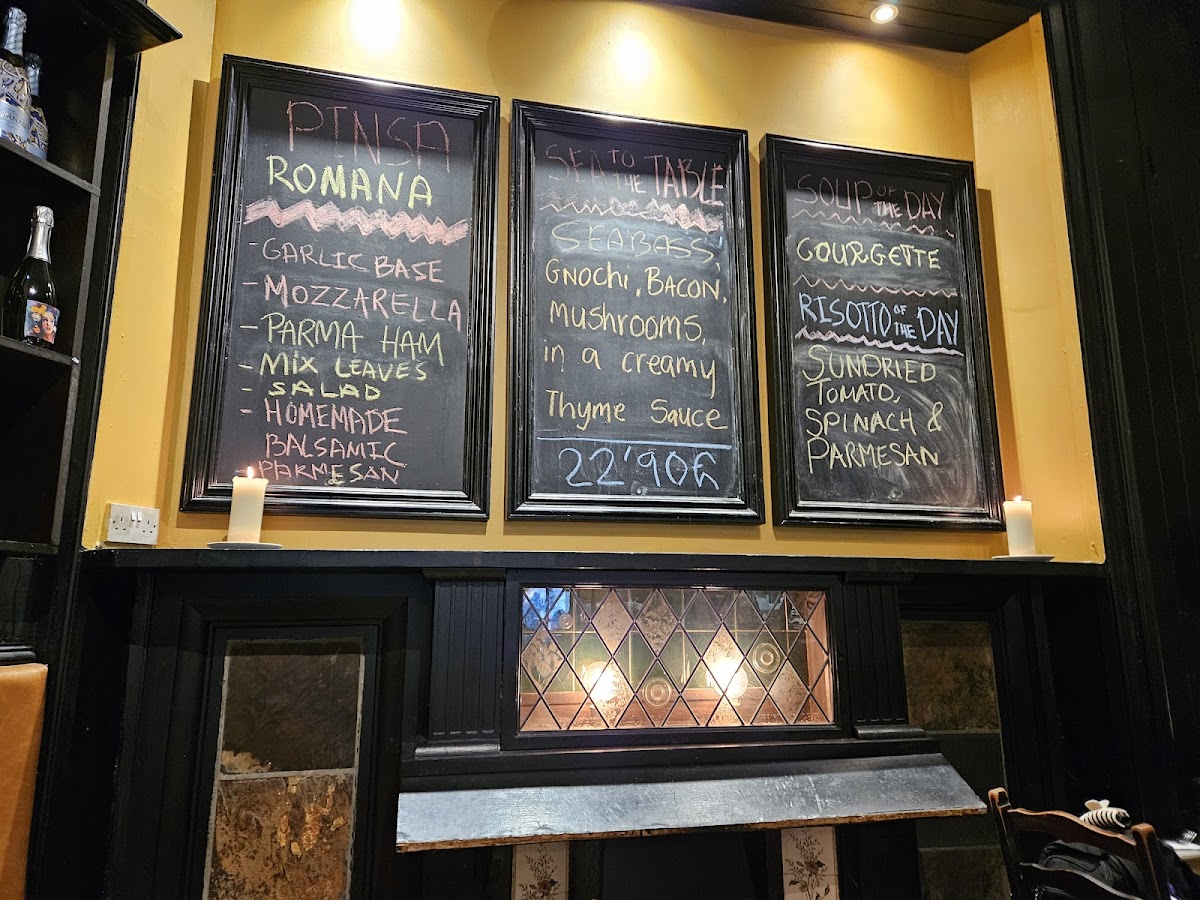 PINSA
ROMANA
- GARLIC BASE
- MOZZARELLA
- PARMA HAM
- MIX LEAVES
- SALAD
- HOMEMADE
BALSAMIC
- PARMESAN
SEA TO THE TABLE
SEABASS,
GNOCHI, BACON,
MUSHROOMS,
in a creamy
Thyme Sauce
22'90£
SOUP OF THE DAY
COURGETTE
RISOTTO OF THE DAY
SUNDRIED
TOMATO,
SPINACH &
PARMESAN